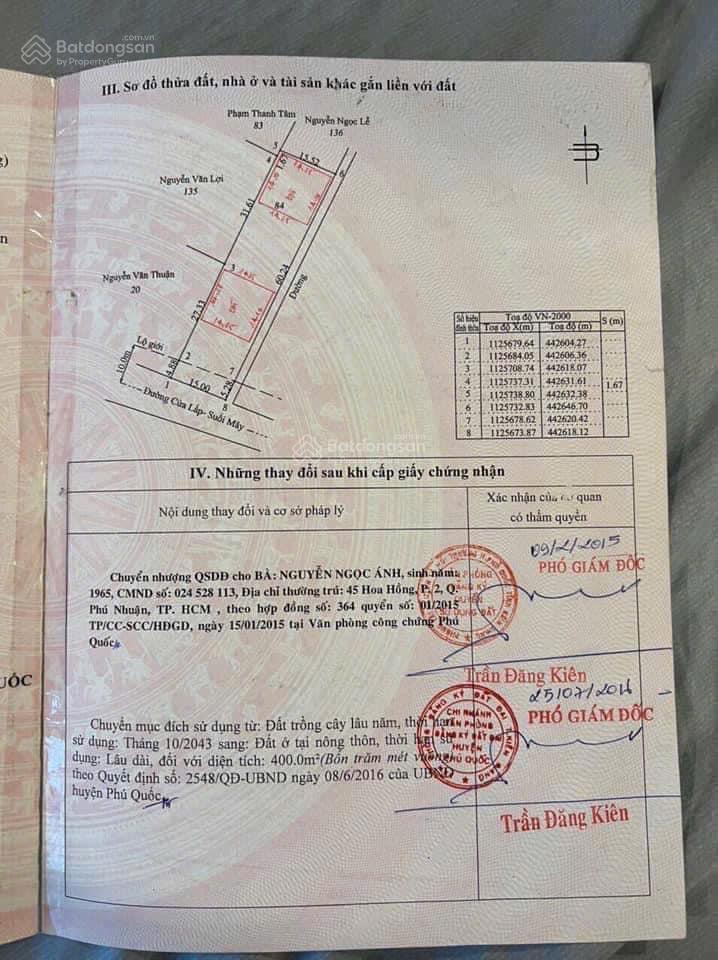 Batdongsan
.com.vn
by PropertyGuru
III. Sơ đồ thửa đất, nhà ở và tài sản khác gắn liền với đất
Phạm Thanh Tâm
83
Nguyễn Ngọc Lễ
136
Nguyễn Văn Lợi
135
Nguyễn Văn Thuận
20
5
4
1.67
15.52
6
84
31.61
3
60.24
Đường
27.33
Lộ giới
10.0m
4.88
2
1
15.00
7
5.28
8
Đường Cửa Lấp- Suối Mây
Số hiệu đỉnh thửa
Toạ độ VN-2000
S (m)
Toạ độ X(m) Toạ độ (m)
1 1125679.64 442604.27
2 1125684.05 442606.36
3 1125708.74 442618.07
4 1125737.31 442631.61
1.67
5 1125738.80 442632.38
6 1125732.83 442646.70
7 1125678.62 442620.42
8 1125673.87 442618.12
Batdongsan
IV. Những thay đổi sau khi cấp giấy chứng nhận
Nội dung thay đổi và cơ sở pháp lý
Xác nhận của cơ quan
có thẩm quyền
Chuyển nhượng QSDĐ cho BÀ: NGUYỄN NGỌC ÁNH, sinh năm:
1965, CMND số: 024 528 113, Địa chỉ thường trú: 45 Hoa Hồng, P. 2, Q.
Phú Nhuận, TP. HCM , theo hợp đồng số: 364 quyển số: 01/2015
TP/CC-SCC/HĐGD, ngày 15/01/2015 tại Văn phòng công chứng Phú
Quốc
09/2/2015
PHÓ GIÁM ĐỐC
Trần Đăng Kiên
UỐC
Chuyển mục đích sử dụng từ: Đất trồng cây lâu năm, thời hạn
sử dụng: Tháng 10/2043 sang: Đất ở tại nông thôn, thời hạn sử
dụng: Lâu dài, đối với diện tích: 400.0m² (Bốn trăm mét vuông)
theo Quyết định số: 2548/QĐ-UBND ngày 08/6/2016 của UBND
huyện Phú Quốc
25/07/2016
PHÓ GIÁM ĐỐC
CHI NHÁNH
VĂN PHÒNG
ĐĂNG KÝ ĐẤT ĐAI
HUYỆN
PHÚ QUỐC
Trần Đăng Kiên